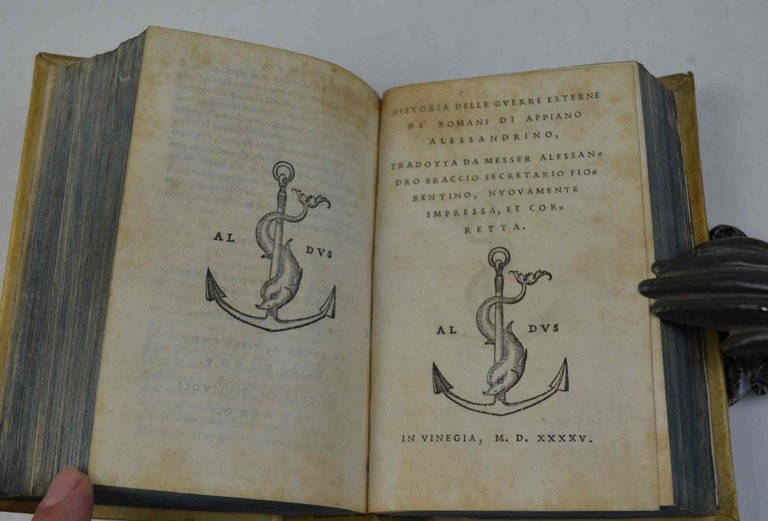 AL DVS
HISTORIA DELLE GVERRE ESTERNE
DE' ROMANI DI APPIANO
ALESSANDRINO,
TRADOTTA DA MESSER ALESSAN=
DRO BRACCIO SECRETARIO FIO=
RENTINO, NVOVAMENTE
IMPRESSA, ET COR=
RETTA.
AL DVS
IN VINEGIA, M. D. XXXXV.